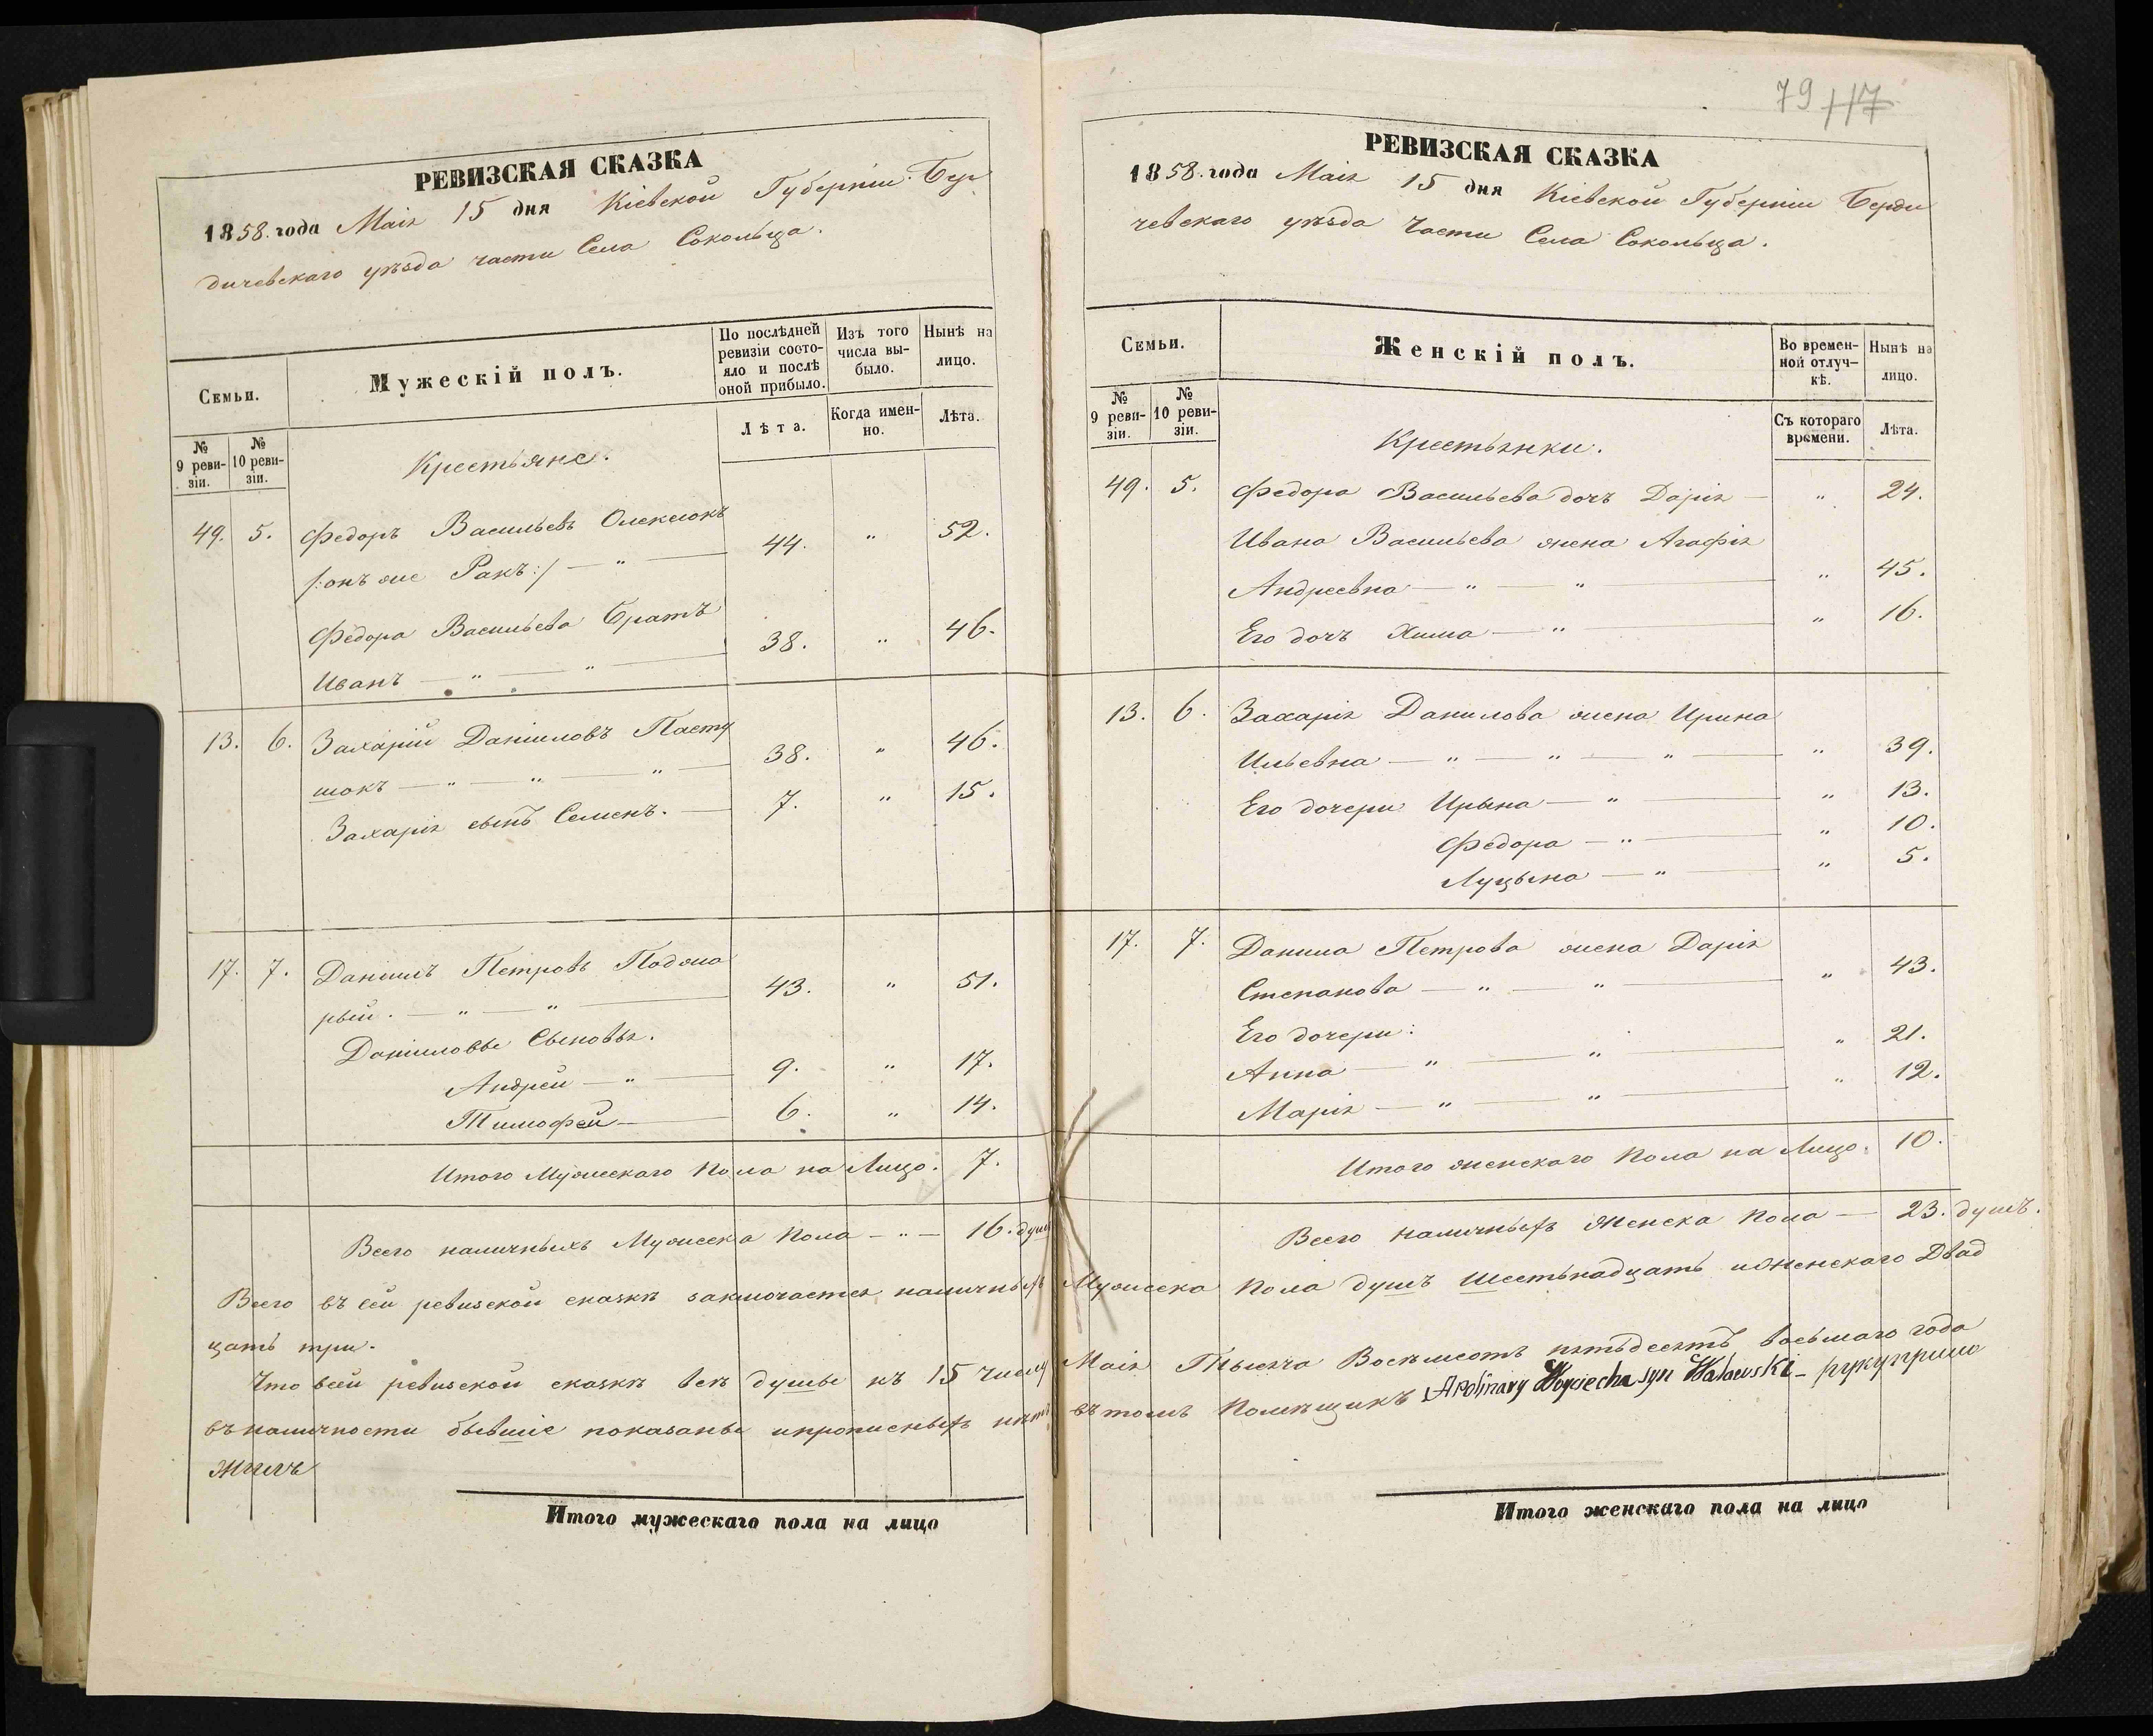 РЕВИЗСКАЯ СКАЗКА
1858. года Маія 15 дня Кіевской Губерніи Бер
дичевскаго уѣзда части Села Сокольца.
Семьи.
Мужескій полъ.
По послѣдней ревизіи состо-
яло и послѣ оной прибыло.
Изъ того числа вы-
было.
Нынѣ на лицо.
№ 9 реви-
зіи.
№ 10 реви-
зіи.
Лѣта.
Когда имен-
но.
Лѣта.
Крестьяне.
49. 5. Федоръ Васильевъ Олексюкъ
/:онъ же Ракъ:/ — " — 44. " 52.
Федора Васильева Братъ
Иванъ — " — " — 38. " 46.
13. 6. Захарій Даніиловъ Пасту
шокъ — " — " — " — 38. " 46.
Захарія сынъ Семенъ. — 7. " 15.
17. 7. Даніилъ Петровъ Подма
рый. — " — " — 43. " 51.
Даніиловы Сыновья.
Андрей — " — 9. " 17.
Тимофей — 6. " 14.
Итого Мужескаго Пола на Лицо. 7.
Всего наличныхъ Мужеска Пола — " — 16. душъ
79 117
РЕВИЗСКАЯ СКАЗКА
1858. года Маія 15 дня Кіевской Губерніи Берди
чевскаго уѣзда Части Села Сокольца.
Семьи.
Женскій полъ.
Во времен-
ной отлуч-
кѣ.
Нынѣ на лицо.
№ 9 реви-
зіи.
№ 10 реви-
зіи.
Съ котораго времени.
Лѣта.
Крестьянки.
49. 5. Федора Васильева дочь Дарія — " 24.
Ивана Васильева жена Агафія
Андреевна — " — " — " 45.
Его дочь Хима — " — " 16.
13. 6. Захарія Данилова жена Ирина
Ильевна — " — " — " — " 39.
Его дочери Ирына — " — " 13.
Федора — " — " 10.
Луцына — " — " 5.
17. 7. Данила Петрова жена Дарія
Степанова — " — " — " 43.
Его дочери:
Анна — " — " — " 21.
Марія — " — " — " 12.
Итого женскаго Пола на Лицо. 10.
Всего наличныхъ Женска Пола — 23. душъ.
Всего въ сей ревизской сказкѣ заключается наличныхъ Мужеска Пола душъ Шестьнадцать иЖенскаго Двад
цать три.
Что всей ревизской сказкѣ всѣ душы къ 15 числу Маія Тысяча Восемсотъ пятьдесятъ восьмаго года
въналичности бывшіе показаны ипрописныхъ нѣтъ вътомъ Помѣщикъ Apolinary Woyciecha syn Haławski – рукуприло
жилъ
Итого мужескаго пола на лицо
Итого женскаго пола на лицо